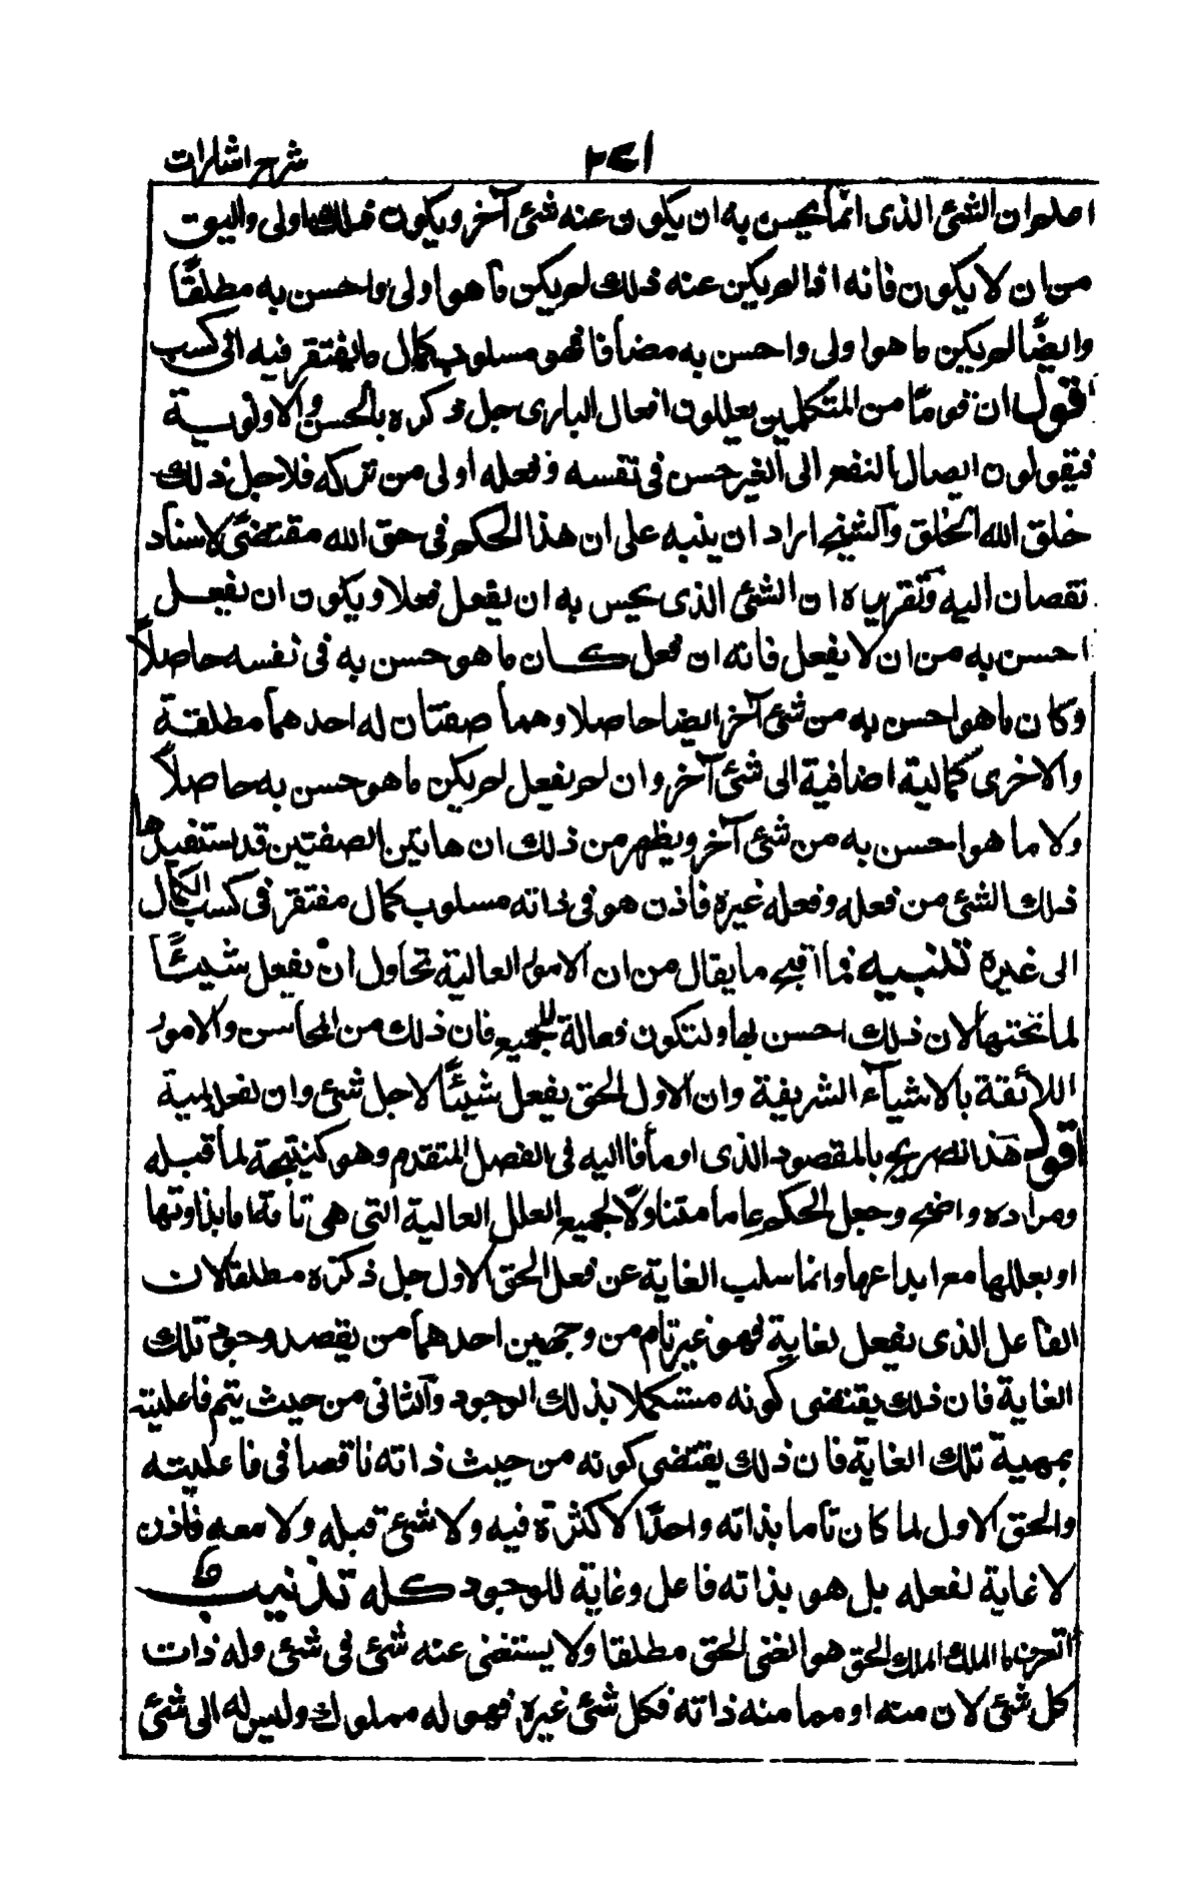 ٢٤١ شرح اشارات
اعلم ان الشئ الذى انما يحسن به ان يكون عنه شئ آخر ويكون ذلك اولى واليق
من ان لا يكون فانه اذا لم يكن عنه ذلك لم يكن ما هو اولى واحسن به مطلقًا
وايضًا لم يكن ما هو اولى واحسن به مضافا فهو مسلوب كمال ما يفتقر فيه الى كسب
اقول ان قومًا من المتكلمين يعللون افعال البارى جل ذكره بالحسن والاولوية
فيقولون ايصال النفع الى الغير حسن فى نفسه وفعله اولى من تركه فلاجل ذلك
خلق الله الخلق والشيخ اراد ان ينبه على ان هذا الحكم فى حق الله مقتضى لاسناد
نقصان اليه وتقريره ان الشئ الذى يحسن به ان يفعل فعلا ويكون ان يفعل
احسن به من ان لا يفعل فانه ان فعل كان ما هو حسن به فى نفسه حاصلاً
وكان ما هو احسن به من شئ آخر ايضا حاصلا وهما صفتان له احدهما مطلقة
والاخرى كمالية اضافية الى شئ آخر وان لم يفعل لم يكن ما هو حسن به حاصلاً
ولا ما هو احسن به من شئ آخر ويظهر من ذلك ان هاتين الصفتين قد استفيدها
ذلك الشئ من فعله وفعله غيره فاذن هو فى ذاته مسلوب كمال مفتقر فى كسب الكمال
الى غيره تنبيه فما اقبح ما يقال من ان الامور العالية تحاول ان يفعل شيئًا
لما تحتها لان ذلك احسن بها ولتكون فعالة للجميع فان ذلك من المحاسن والامور
اللائقة بالاشياء الشريفة وان الاول الحق يفعل شيئًا لاجل شئ وان لفعله لمية
اقول هذا تصريح بالمقصود الذى اومأنا اليه فى الفصل المتقدم وهو كنتيجة لما قبله
ومراده واضح وجعل الحكم عاما متناولًا لجميع العلل العالية التى هى تامة اما بذاوتها
او بعللها مع ابداعها وانما سلب الغاية عن فعل الحق الاول جل ذكره مطلقا لان
الفاعل الذى يفعل لغاية فهو غير تام من وجهين احدهما من يقصد وجود تلك
الغاية فان ذلك يقتضى كونه مستكملا بذلك الوجود والثانى من حيث يتم فاعليته
بمهية تلك الغاية فان ذلك يقتضى كونه من حيث ذاته ناقصا فى فاعليته
والحق الاول لما كان تاما بذاته واحدًا لا كثرة فيه ولا شئ قبله ولا معه فاذن
لا غاية لفعله بل هو بذاته فاعل وغاية للوجود كله تذنيب
اتعرف ما الملك الملك الحق هو الغنى الحق مطلقا ولا يستغنى عنه شئ فى شئ وله ذات
كل شئ لان منه او مما منه ذاته فكل شئ غيره فهو له مملوك وليس له الى شئ